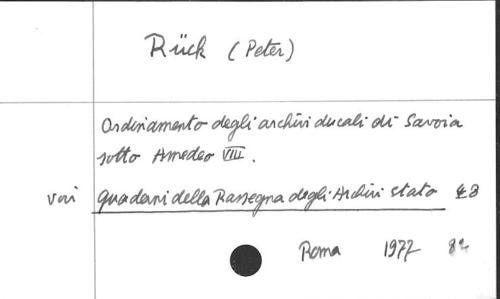 Rück (Peter)
Ordinamento degli archivi ducali di Savoia
sotto Amedeo VIII.
voir Quaderni della Rassegna degli Archivi Stato 48
Roma 1977 8°